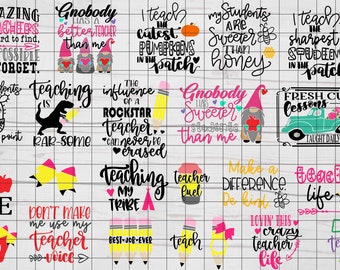 AZING
TEACHERS
hard to find,
IMPOSSIBLE
FORGET.
Gnobody
HAS A
better TEACHER
than me
I teach
THE
cutest
PUMPKINS
IN THE
patch
my Students
ARE
Sweeter
THAN
honey
I teach
THE
sharpest
STUDENTS
IN THE
patch
teaching
is
RAR-SOME
THE
influence
OF A
ROCKSTAR
teacher
CAN
never be
erased
Gnobody
HAS
sweeter
STUDENTS
than me
FRESH CU
Lessons
TAUGHT DAILY
DON'T MAKE
me use my
teacher
voice
teaching
is
MY TRIBE
BEST•JOB•EVER
teacher
fuel
teach
MAKE A
DIFFERENCE
Be kind
LOVIN' THIS
crazy
teacher
life
life